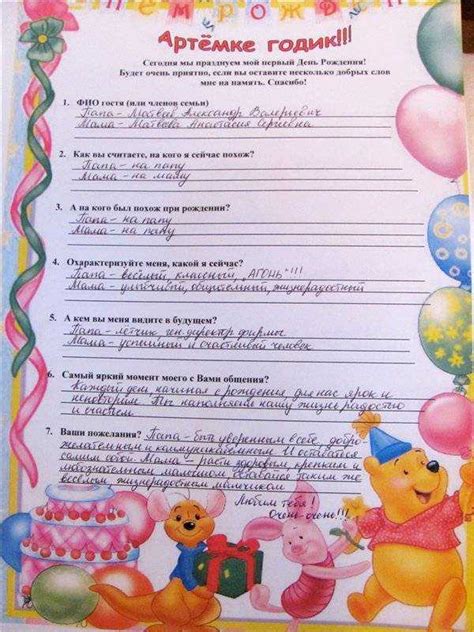 ДНЁМ РОЖДЕН
Артёмке годик!!!
Сегодня мы празднуем мой первый День Рождения!
Будет очень приятно, если вы оставите несколько добрых слов
мне на память. Спасибо!
1. ФИО гостя (или членов семьи)
Папа - Матвеев Александр Валериевич
Мама - Матвеева Анастасия Сергеевна
2. Как вы считаете, на кого я сейчас похож?
Папа - на папу
Мама - на маму
3. А на кого был похож при рождении?
Папа - на папу
Мама - на папу
4. Охарактеризуйте меня, какой я сейчас?
Папа - весёлый, классный, АГОНЬ!!!
Мама - улыбчивый, общительный, жизнерадостный
5. А кем вы меня видите в будущем?
Папа - лётчик, ген. директор фирмы
Мама - успешный и счастливый человек
6. Самый яркий момент моего с Вами общения?
Каждый день, начиная с рождения для нас ярок и
неповторим. Ты наполняешь нашу жизнь радостью
и счастьем
7. Ваши пожелания? Папа - быть уверенным в себе, добро-
желательным и коммуникабельным. И оставаться
самим собой. Мама - расти здоровым, крепким и
любознательным малышом, оставайся таким же
весёлым, жизнерадостным мальчиком
Любим тебя!
Очень-очень!!!